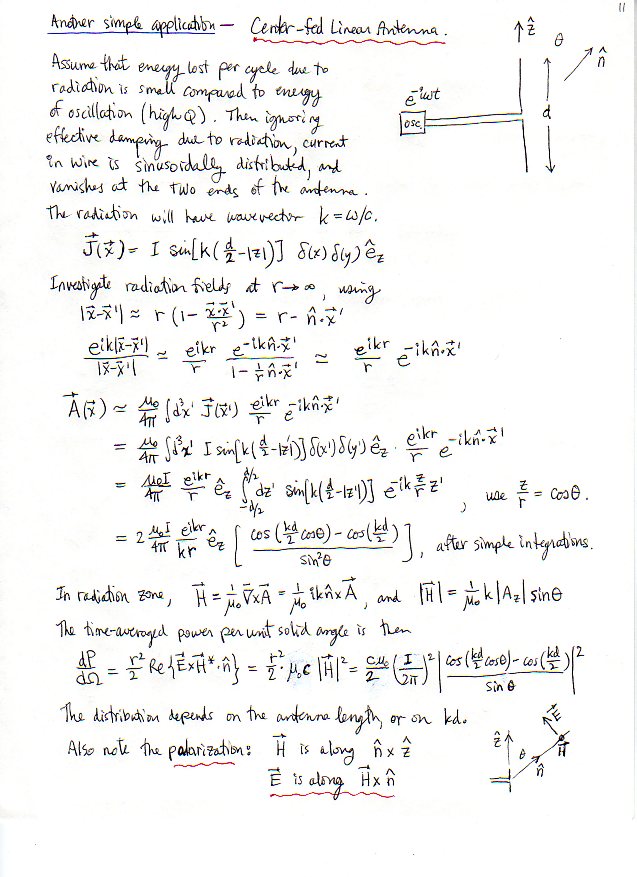 11
Another simple application — Center-fed Linear Antenna.
Assume that energy lost per cycle due to
radiation is small compared to energy
of oscillation (high Q). Then ignoring
effective damping due to radiation, current
in wire is sinusoidally distributed, and
vanishes at the two ends of the antenna.
The radiation will have wavevector k = ω/c.
ẑ
θ
n̂
e^{-iωt}
osc.
d
J⃗(x⃗) = I sin[k(d/2 - |z|)] δ(x) δ(y) ê_z
Investigate radiation fields at r→∞, using
|x⃗-x⃗'| ≈ r (1 - x⃗·x⃗'/r²) = r - n̂·x⃗'
e^{ik|x⃗-x⃗'|}/|x⃗-x⃗'| ≃ e^{ikr}/r e^{-ikn̂·x⃗'}/(1 - 1/r n̂·x⃗') ≃ e^{ikr}/r e^{-ikn̂·x⃗'}
A⃗(x⃗) ≃ μ₀/4π ∫d³x' J⃗(x⃗') e^{ikr}/r e^{-ikn̂·x⃗'}
= μ₀/4π ∫d³x' I sin[k(d/2 - |z'|)] δ(x') δ(y') ê_z · e^{ikr}/r e^{-ikn̂·x⃗'}
= μ₀I/4π e^{ikr}/r ê_z ∫_{-d/2}^{d/2} dz' sin[k(d/2 - |z'|)] e^{-ik z/r z'} , use z/r = cosθ.
= 2 μ₀I/4π e^{ikr}/kr ê_z [ (cos(kd/2 cosθ) - cos(kd/2))/sin²θ ] , after simple integrations.
In radiation zone, H⃗ = 1/μ₀ ∇⃗×A⃗ = 1/μ₀ ikn̂×A⃗ , and |H⃗| = 1/μ₀ k |A_z| sinθ
The time-averaged power per unit solid angle is then
dP/dΩ = r²/2 Re{E⃗×H⃗*·n̂} = r²/2 · μ₀c |H⃗|² = cμ₀/2 (I/2π)² |(cos(kd/2 cosθ) - cos(kd/2))/sinθ|²
The distribution depends on the antenna length, or on kd.
Also note the polarization: H⃗ is along n̂ × ẑ
E⃗ is along H⃗ × n̂
ẑ
θ
n̂
E⃗
H⃗